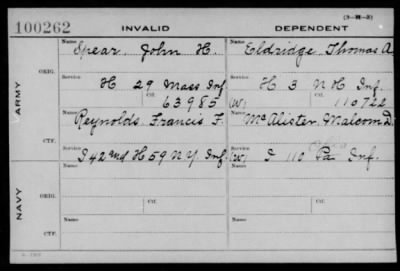 (3-M-3)
100262 INVALID DEPENDENT
ARMY
ORIG.
Name Spear, John H.
Name Eldridge, Thomas A
Service H 29 Mass Inf.
Service H 3 N H Inf.
Ctf. 63985
(W) Ctf. 110722
CTF.
Name Reynolds, Francis F.
Name McAlister, Malcom D.
Service I 42nd H 59 N.Y. Inf.
Service (W) I 110 Pa Inf.
NAVY
ORIG.
Name
Name
Service
Service
Ctf.
Ctf.
CTF.
Name
Name